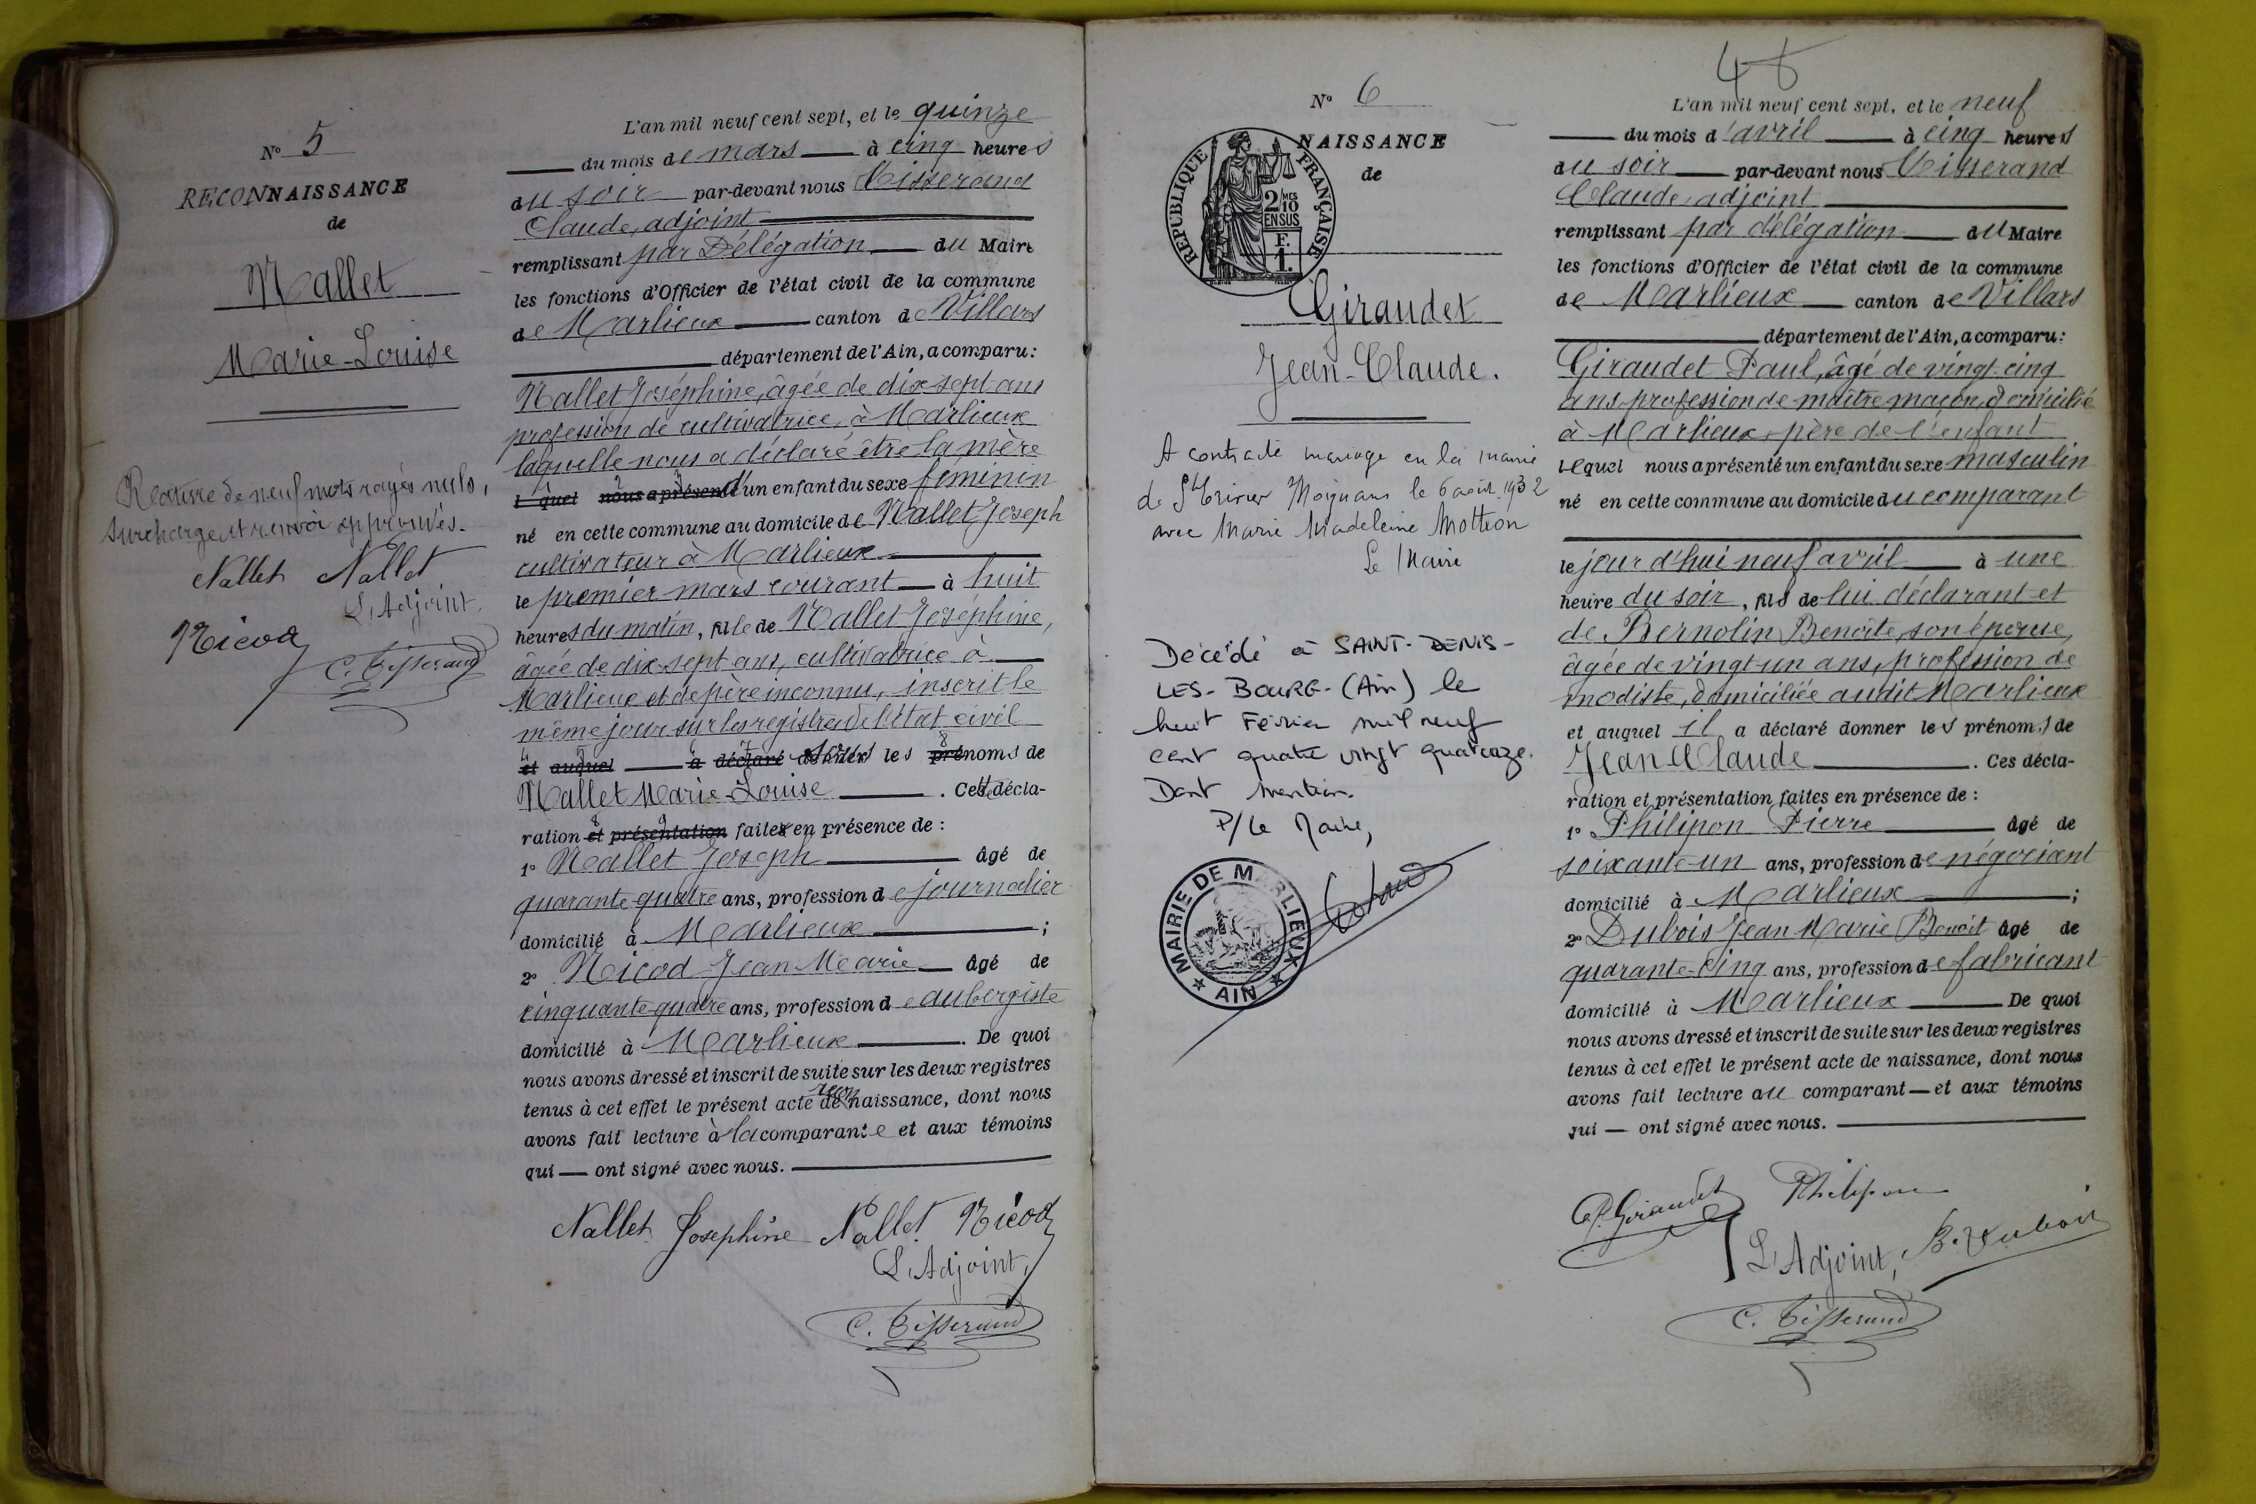 N° 5
RECONNAISSANCE
de
Nallet
Marie-Louise
Rature de neuf mots rayés nuls,
surcharge et renvoi approuvés.
Nallet Nallet
L'Adjoint,
Nicod
C. Tisserand
L'an mil neuf cent sept, et le quinze
du mois de mars à cinq heures
du soir par-devant nous Tisserand
Claude, adjoint
remplissant par Délégation du Maire
les fonctions d'Officier de l'état civil de la commune
de Marlieux canton de Villars
département de l'Ain, a comparu:
Nallet Joséphine, âgée de dix sept ans
profession de cultivatrice, à Marlieux
laquelle nous a déclaré être la mère
l quel nous a présenté d'un enfant du sexe féminin
né en cette commune au domicile de Nallet Joseph
cultivateur à Marlieux
le premier mars courant à huit
heures du matin, fille de Nallet Joséphine,
âgée de dix-sept ans, cultivatrice à
Marlieux et de père inconnu, inscrit le
même jour sur les registres de l'état civil
et auquel a déclaré donner sous les prénoms de
Nallet Marie-Louise. Cette décla-
ration et présentation faites en présence de :
1° Nallet Joseph âgé de
quarante-quatre ans, profession de journalier
domicilié à Marlieux ;
2° Nicod Jean-Marie âgé de
cinquante-quatre ans, profession de aubergiste
domicilié à Marlieux. De quoi
nous avons dressé et inscrit de suite sur les deux registres
tenus à cet effet le présent acte de recon naissance, dont nous
avons fait lecture à la comparante et aux témoins
qui — ont signé avec nous.
Nallet Joséphine Nallet Nicod
L'Adjoint,
C. Tisserand
48
N° 6
NAISSANCE
de
RÉPUBLIQUE FRANÇAISE
2/10 MES
EN SUS
F.
1.
Giraudet
Jean-Claude.
A contracté mariage en la mairie
de St Trivier Moignans le 6 août 1932
avec Marie Madeleine Mottion
Le Maire
Décédé à SAINT-DENIS-
LES-BOURG-(Ain) le
huit Février mil neuf
cent quatre vingt quatorze.
Dont mention.
P/Le Maire,
MAIRIE DE MARLIEUX
★ AIN ★
L'an mil neuf cent sept, et le neuf
du mois d'avril à cinq heures
du soir par-devant nous Tisserand
Claude, adjoint
remplissant par délégation du Maire
les fonctions d'Officier de l'état civil de la commune
de Marlieux canton de Villars
département de l'Ain, a comparu:
Giraudet Paul, âgé de vingt-cinq
ans profession de maître maçon, domicilié
à Marlieux, père de l'enfant
lequel nous a présenté un enfant du sexe masculin
né en cette commune au domicile du comparant
le jour d'hui neuf avril à une
heure du soir, fils de lui déclarant et
de Bernolin Benoîte, son épouse,
âgée de vingt-un ans, profession de
modiste, domiciliée audit Marlieux
et auquel il a déclaré donner les prénoms de
Jean Claude. Ces décla-
ration et présentation faites en présence de :
1° Philipon Pierre âgé de
soixante-un ans, profession de négociant
domicilié à Marlieux ;
2° Dubois Jean Marie Benoit âgé de
quarante-cinq ans, profession de fabricant
domicilié à Marlieux De quoi
nous avons dressé et inscrit de suite sur les deux registres
tenus à cet effet le présent acte de naissance, dont nous
avons fait lecture au comparant — et aux témoins
qui — ont signé avec nous.
P. Giraudet Philipon
L'Adjoint, B. Dubois
C. Tisserand